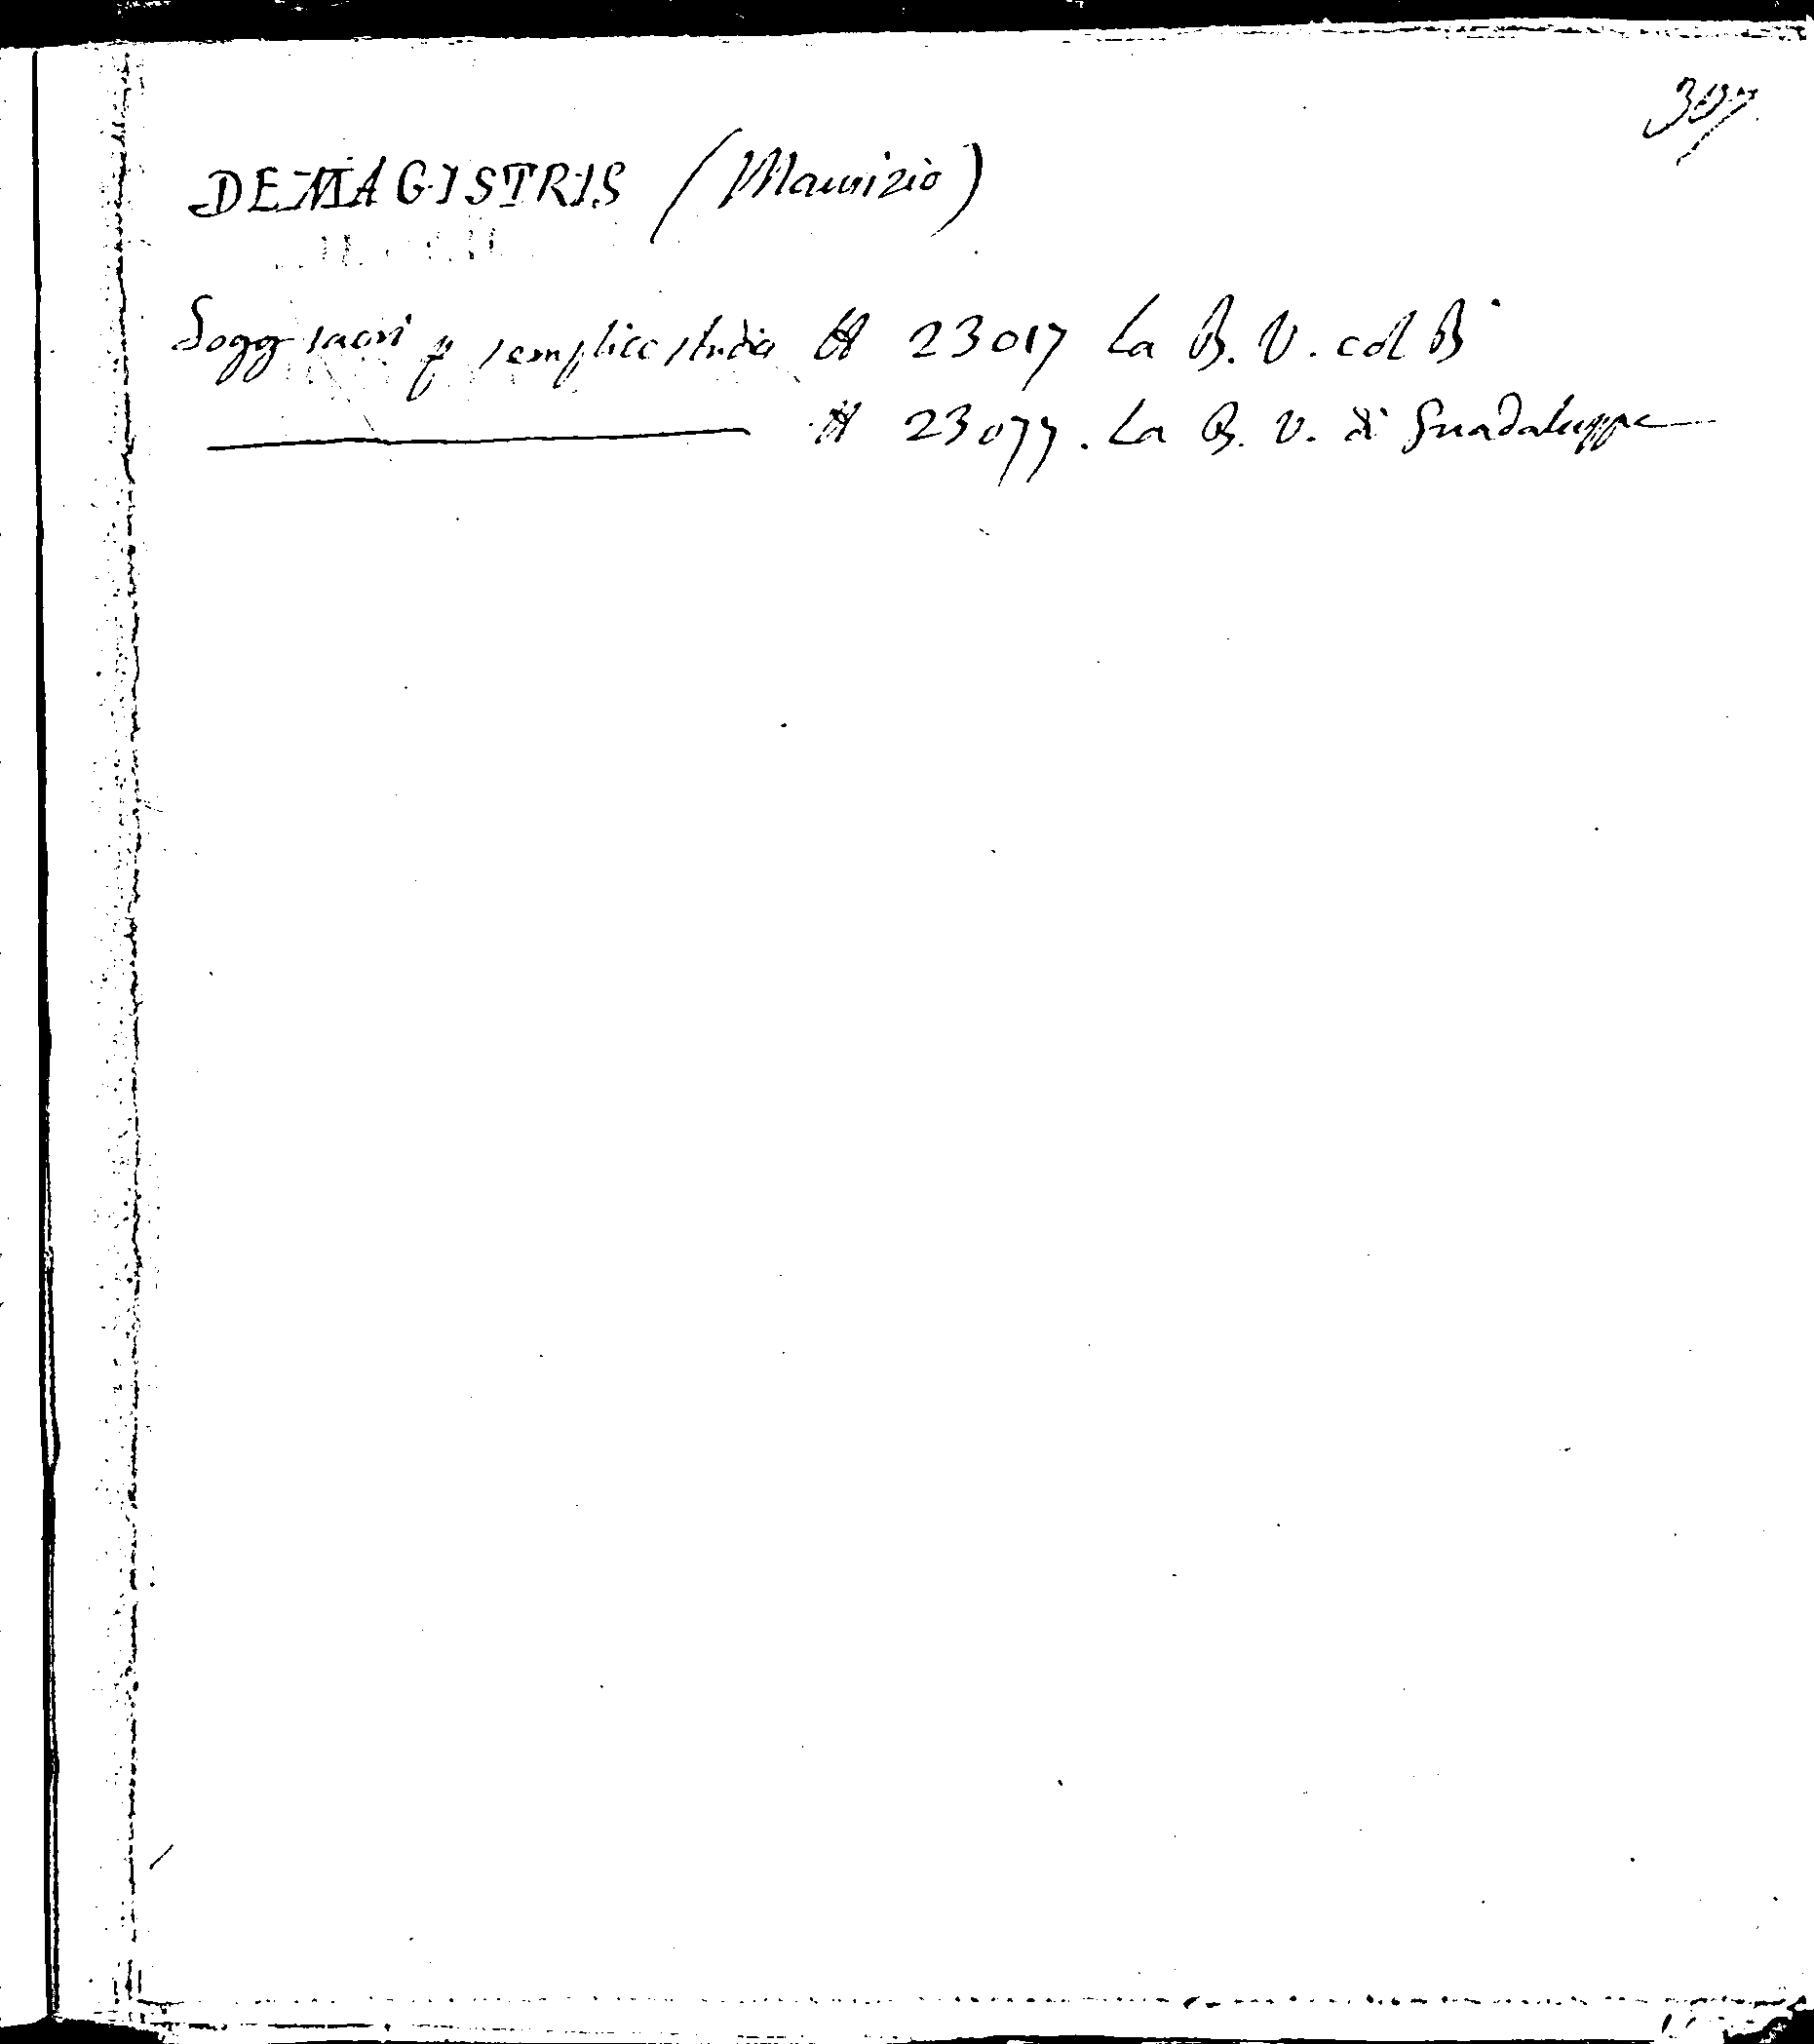 307
DEMAGISTRIS (Maurizio)
Sogg sacri p semplice studio H 23017 La B. V. col B
H 23077. La B. V. di Guadaluppe